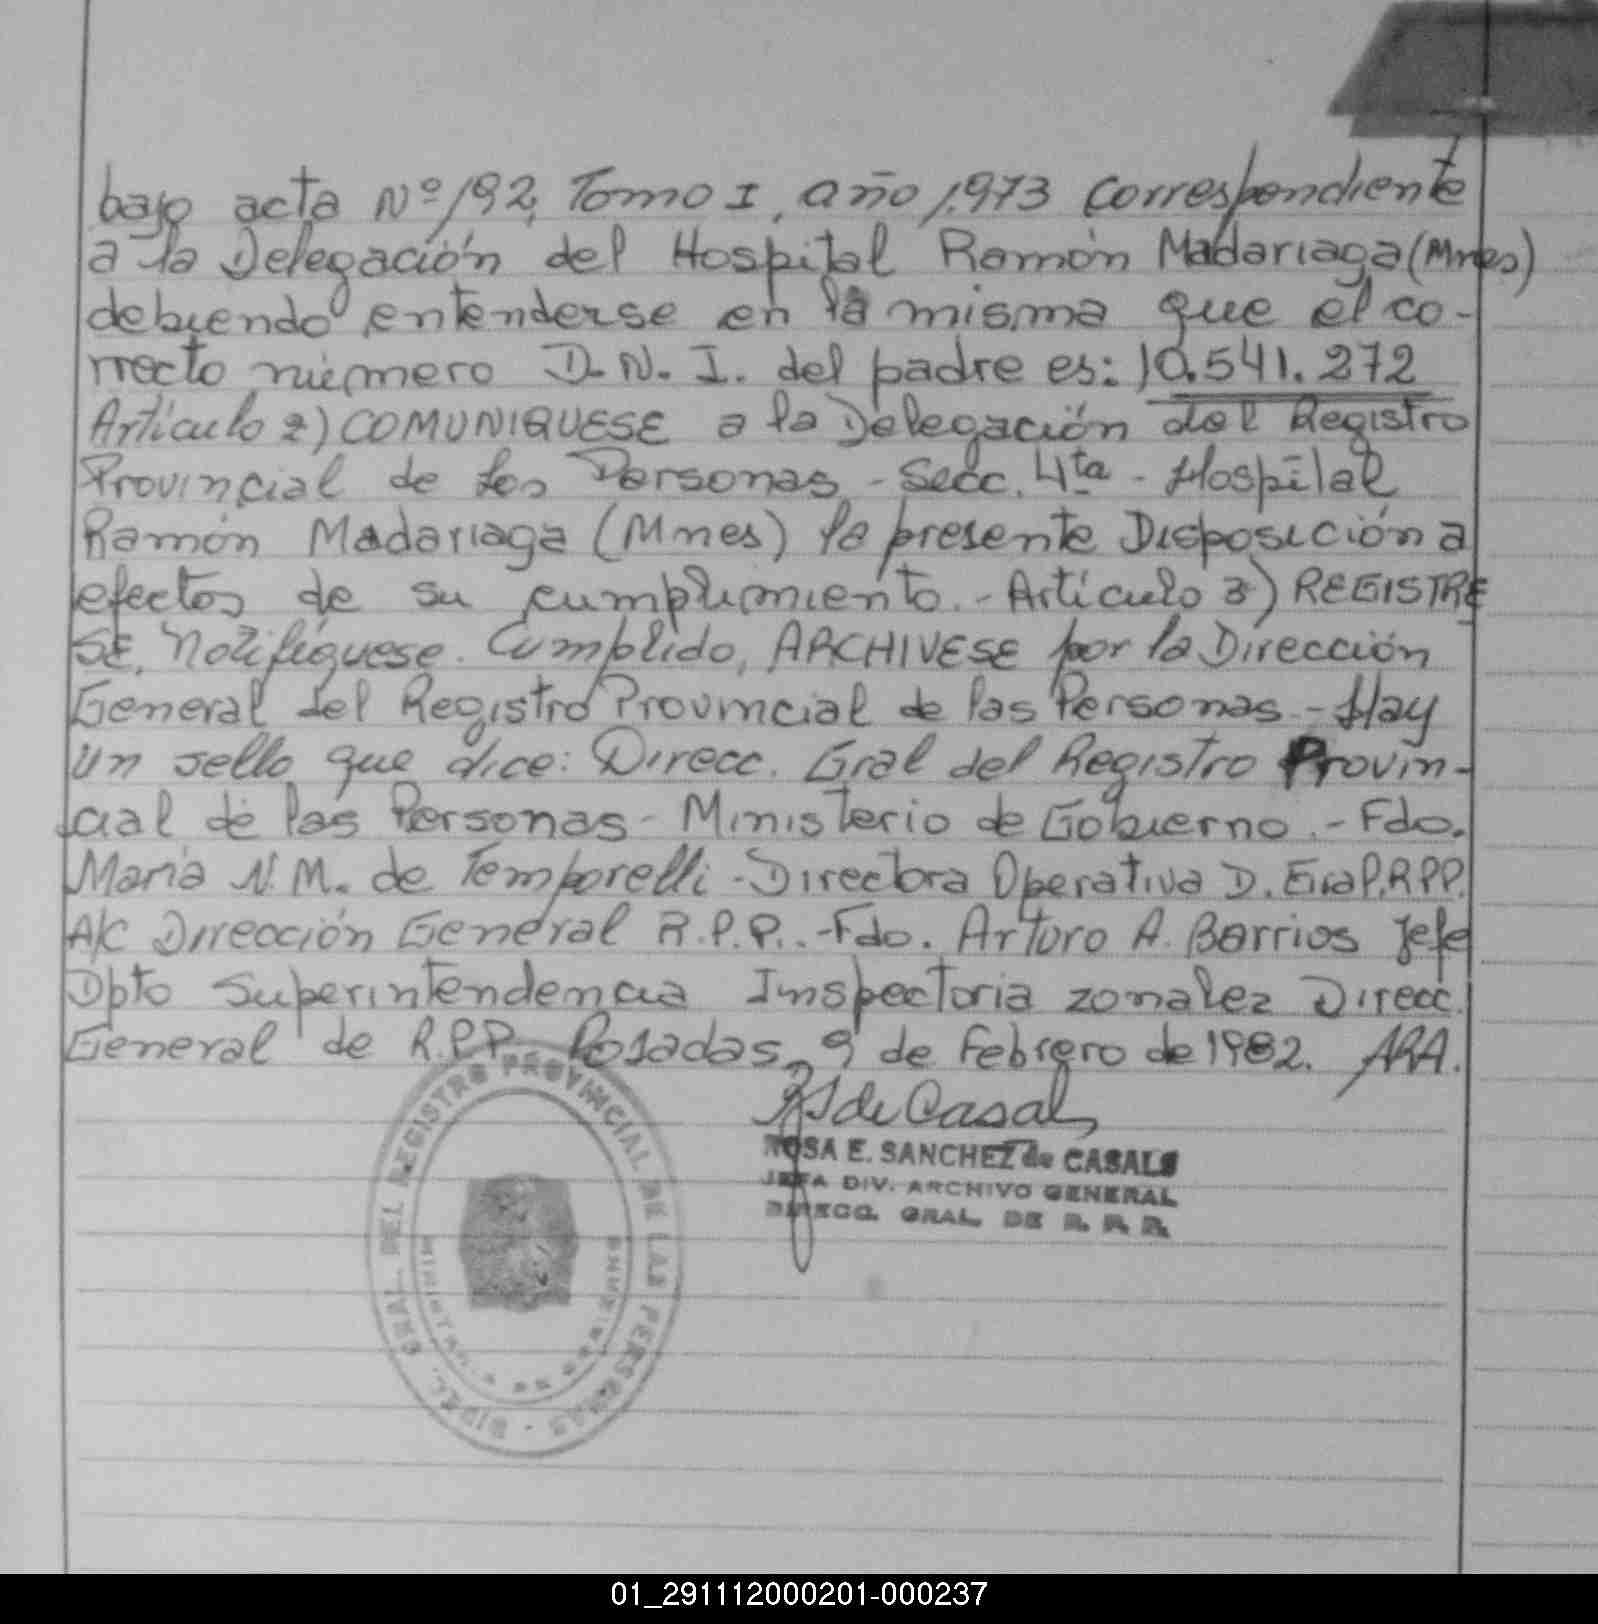 bajo acta Nº 192, Tomo I, año 1.973 correspondiente
a la Delegación del Hospital Ramón Madariaga (Mnes)
debiendo entenderse en la misma que el co-
rrecto número D.N.I. del padre es: 10.541.272
Artículo 2) COMUNIQUESE a la Delegación del Registro
Provincial de las Personas - Secc. 4ta - Hospital
Ramón Madariaga (Mnes) la presente Disposición a
efectos de su cumplimiento. - Artículo 3) REGISTRE
SE, Notifíquese. Cumplido, ARCHIVESE por la Dirección
General del Registro Provincial de las Personas - Hay
un sello que dice: Direcc. Gral del Registro Provin-
cial de las Personas - Ministerio de Gobierno. - Fdo.
María N. M. de Temporelli - Directora Operativa D. Gral. R.P.P.
A/C Dirección General R.P.P.. - Fdo. Arturo A. Barrios Jefe
Dpto Superintendencia Inspectoria zonalez Direcc.
General de R.P.P. Posadas, 9 de Febrero de 1982. ARA.
de Casals
ROSA E. SANCHEZ de CASALS
JEFA DIV. ARCHIVO GENERAL
DIRECC. GRAL. DE R. P. P.
DIREC. GRAL. DEL REGISTRO PROVINCIAL DE LAS PERSONAS
01_291112000201-000237